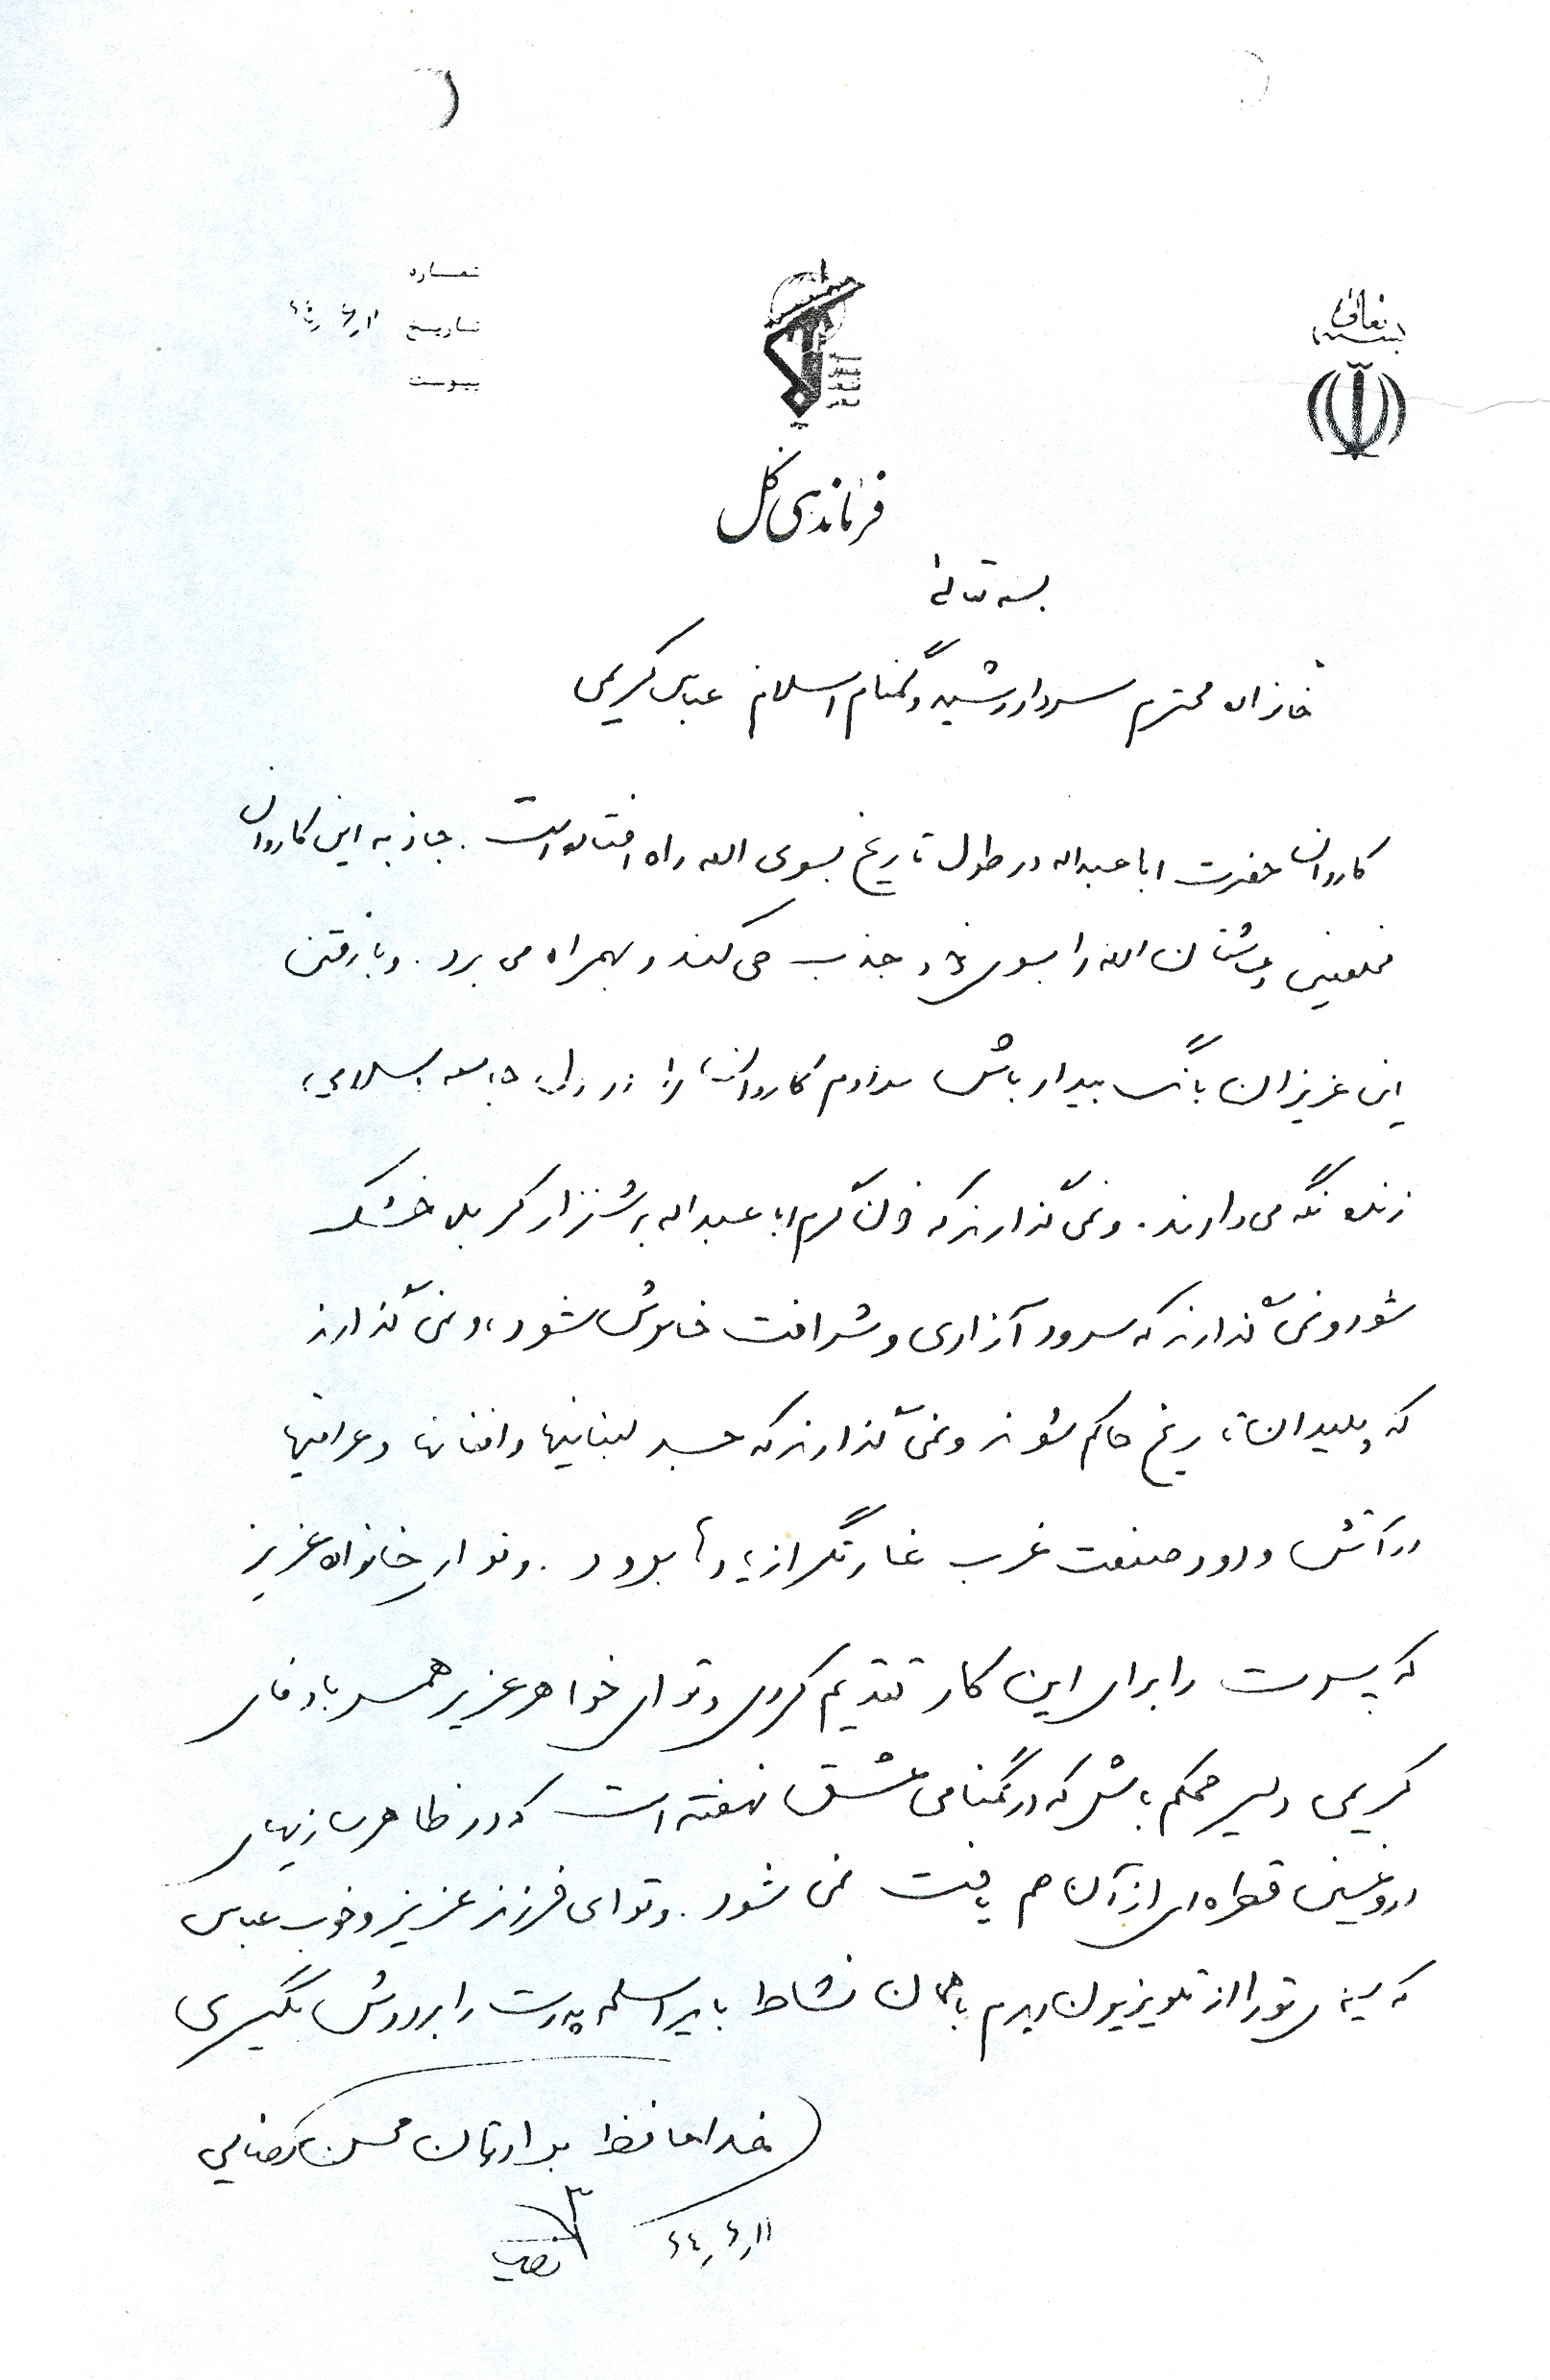 بسمه تعالی
شماره
تاریخ ۶۴٫۶٫۱۱
پیوست
فرماندهی کل
بسمه تعالی
خانواده محترم سردار رشید و گمنام اسلام عباس کریمی
کاروان حضرت اباعبداله در طول تاریخ بسوی الله راه افتاده است. جاذبه این کاروان
مخلصین و عاشقان الله را بسوی خود جذب می کند و بهمراه می برد. و با رفتن
این عزیزان بانگ بیدار باش مداوم کاروانها را در دل جامعه اسلامی،
زنده نگه می دارند. و نمی گذارند که خون گرم اباعبداله بر شنزار کربلا خشک
شود و نمی گذارند که سرود آزادی و شرافت خاموش شود، و نمی گذارند
که پلیدان تاریخ حاکم شوند و نمی گذارند که جسد لبنانیها و افغانها و عراقیها
در آتش و دود صنعت غرب غارتگر از یادها برود. و تو ای خانواده عزیز
که پسرت را برای این کار تقدیم کردی و تو ای خواهر عزیز همسر باوفای
کریمی دلیر محکم باش که در گمنامی عشقی نهفته است که در ظاهرسازیهای
دروغین قطره ای از آن هم یافت نمی شود. و تو ای فرزند عزیز و خوب عباس
که سیمای تو را از تلویزیون دیدم با همان نشاط باید اسلحه پدرت را بر دوش بگیری
خداحافظ برادرتان محسن رضایی
۶۴٫۶٫۱۱